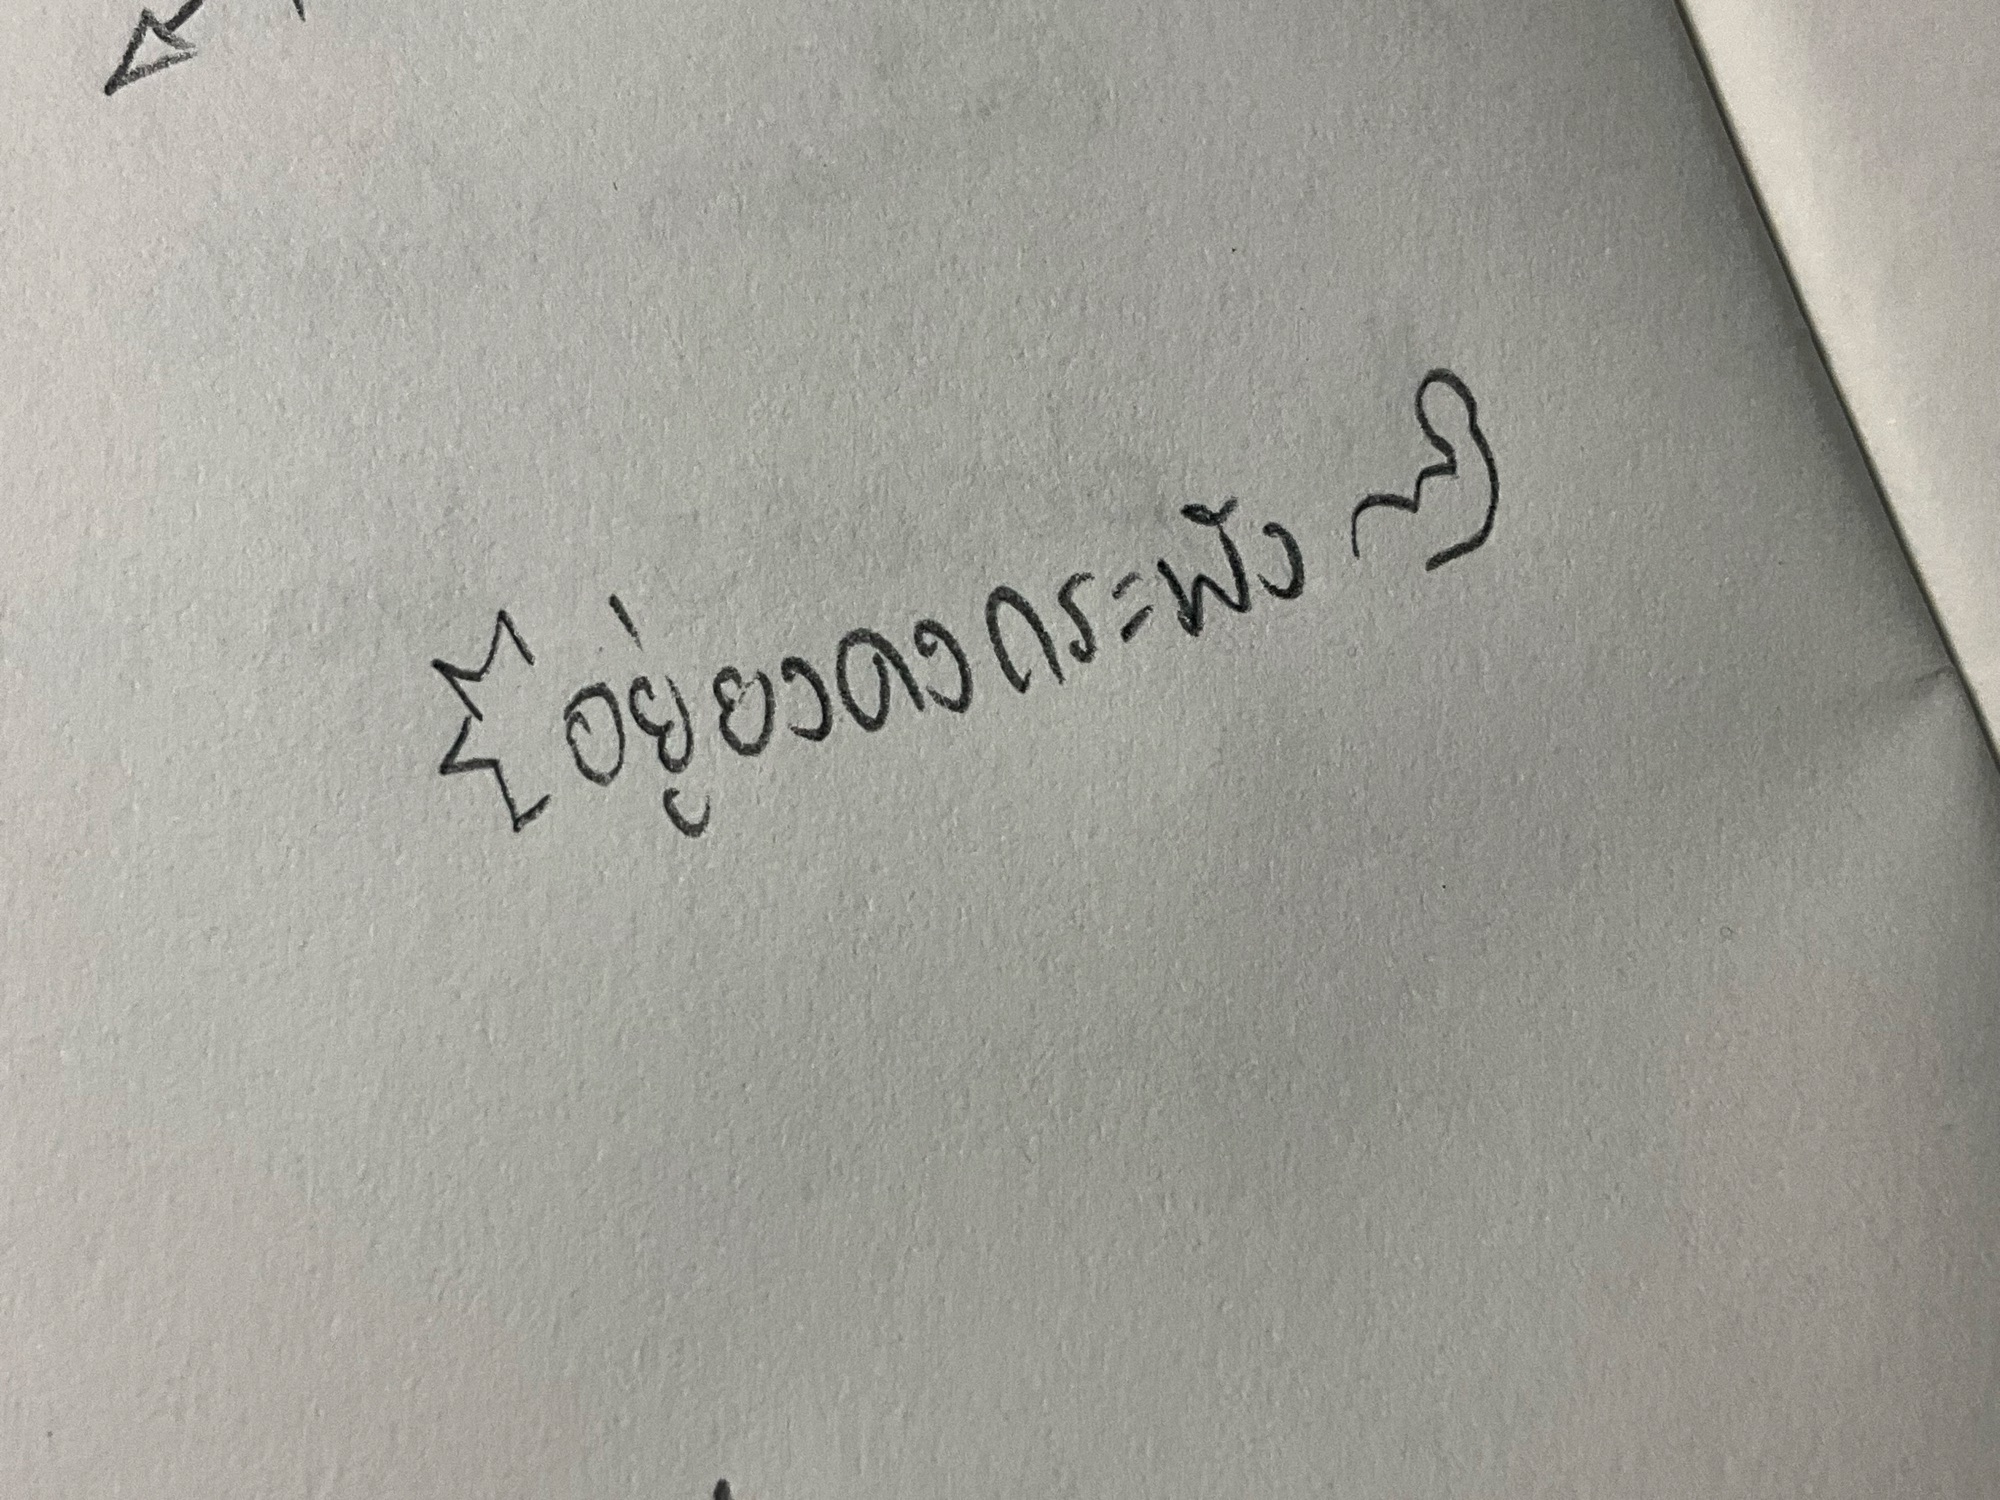 อยู่ยงคงกระพัง